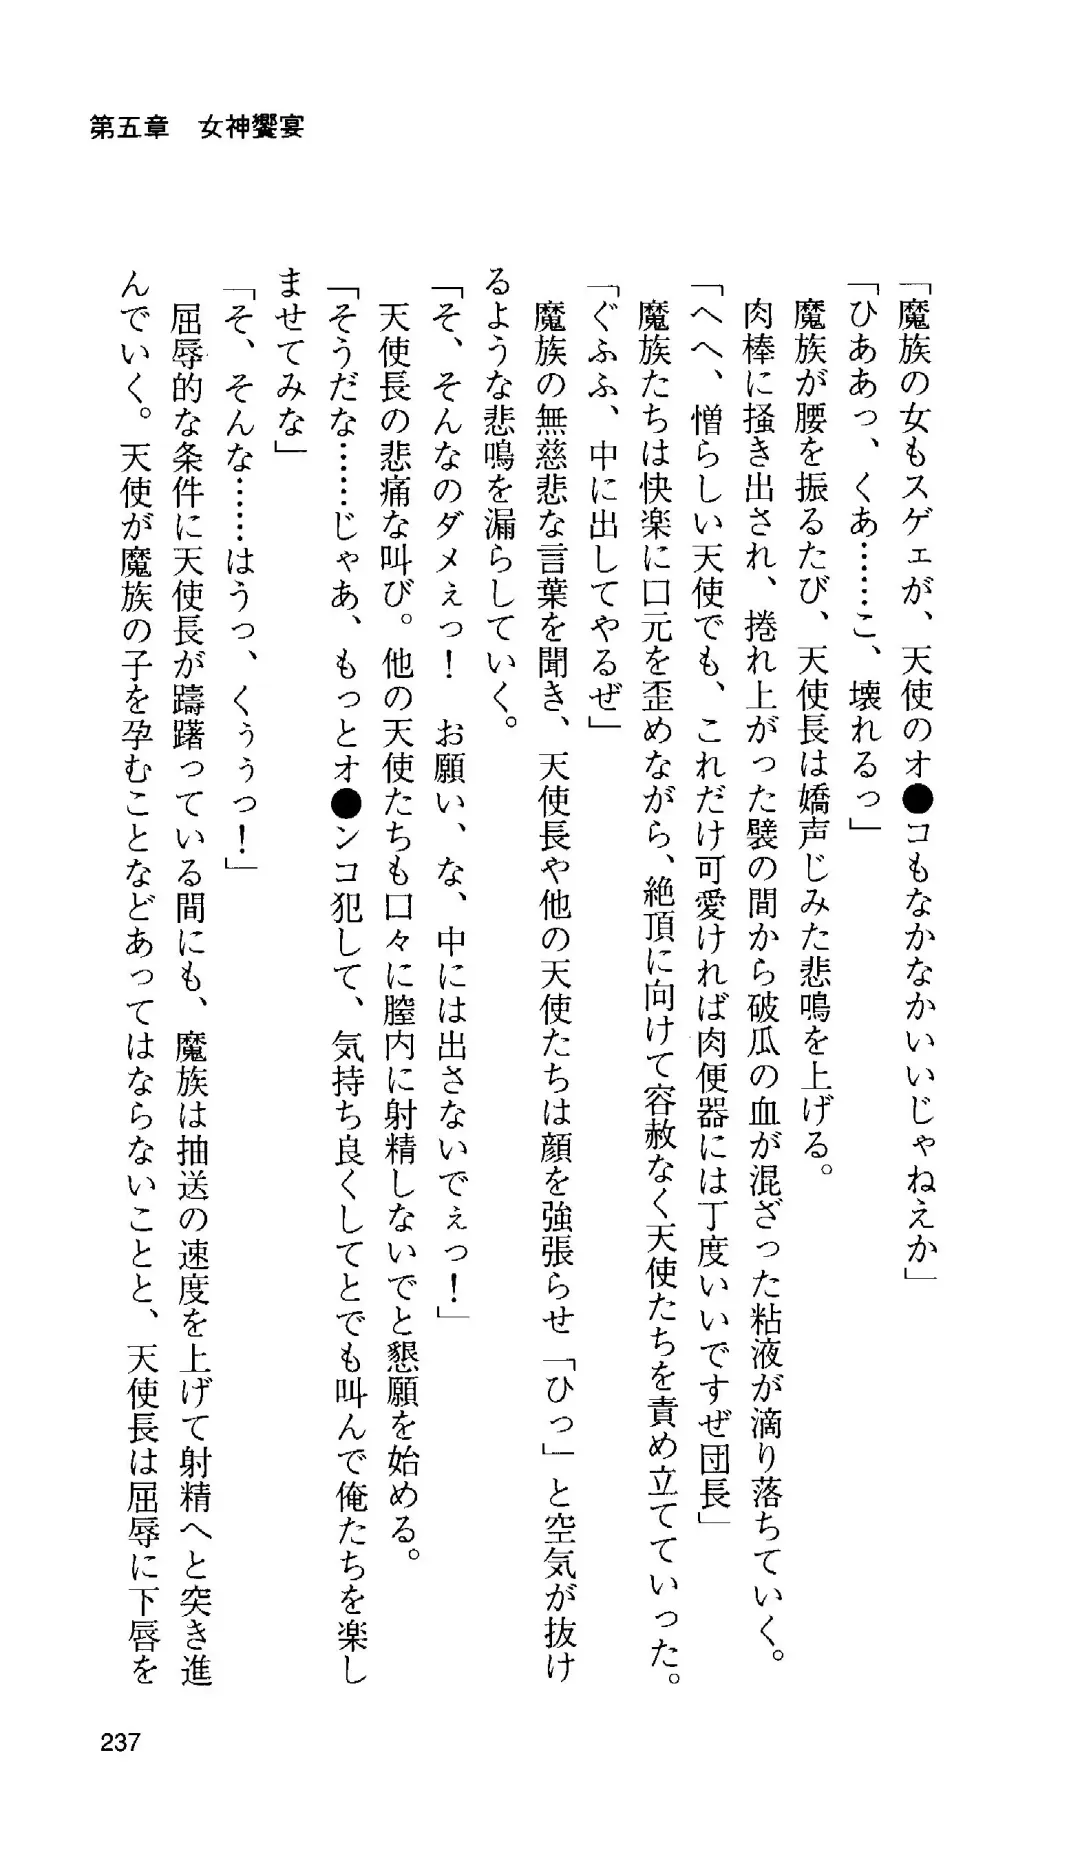 第五章　女神饗宴
「魔族の女もスゲェが、天使のオ●コもなかなかいいじゃねえか」
「ひああっ、くあ……こ、壊れるっ」
　魔族が腰を振るたび、天使長は嬌声じみた悲鳴を上げる。
　肉棒に掻き出され、捲れ上がった襞の間から破瓜の血が混ざった粘液が滴り落ちていく。
「へへ、憎らしい天使でも、これだけ可愛ければ肉便器には丁度いいですぜ団長」
　魔族たちは快楽に口元を歪めながら、絶頂に向けて容赦なく天使たちを責め立てていった。
「ぐふふ、中に出してやるぜ」
　魔族の無慈悲な言葉を聞き、天使長や他の天使たちは顔を強張らせ「ひっ」と空気が抜け
るような悲鳴を漏らしていく。
「そ、そんなのダメぇっ！　お願い、な、中には出さないでぇっ！」
　天使長の悲痛な叫び。他の天使たちも口々に膣内に射精しないでと懇願を始める。
「そうだな……じゃあ、もっとオ●ンコ犯して、気持ち良くしてとでも叫んで俺たちを楽し
ませてみな」
「そ、そんな……はうっ、くぅぅっ！」
　屈辱的な条件に天使長が躊躇っている間にも、魔族は抽送の速度を上げて射精へと突き進
んでいく。天使が魔族の子を孕むことなどあってはならないことと、天使長は屈辱に下唇を
237